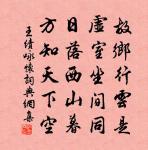 故鄉行雲是
虛室坐間同
日落西山暮
方知天下空
王績詠懷詞典網集